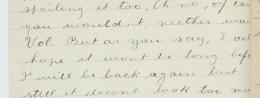 spoiling it too. Oh no, of co
you wouldn't, neither wou
Vol. But as you say, I onl
hope it won't be long befo
I will be back again but
still it doesn't look too mu